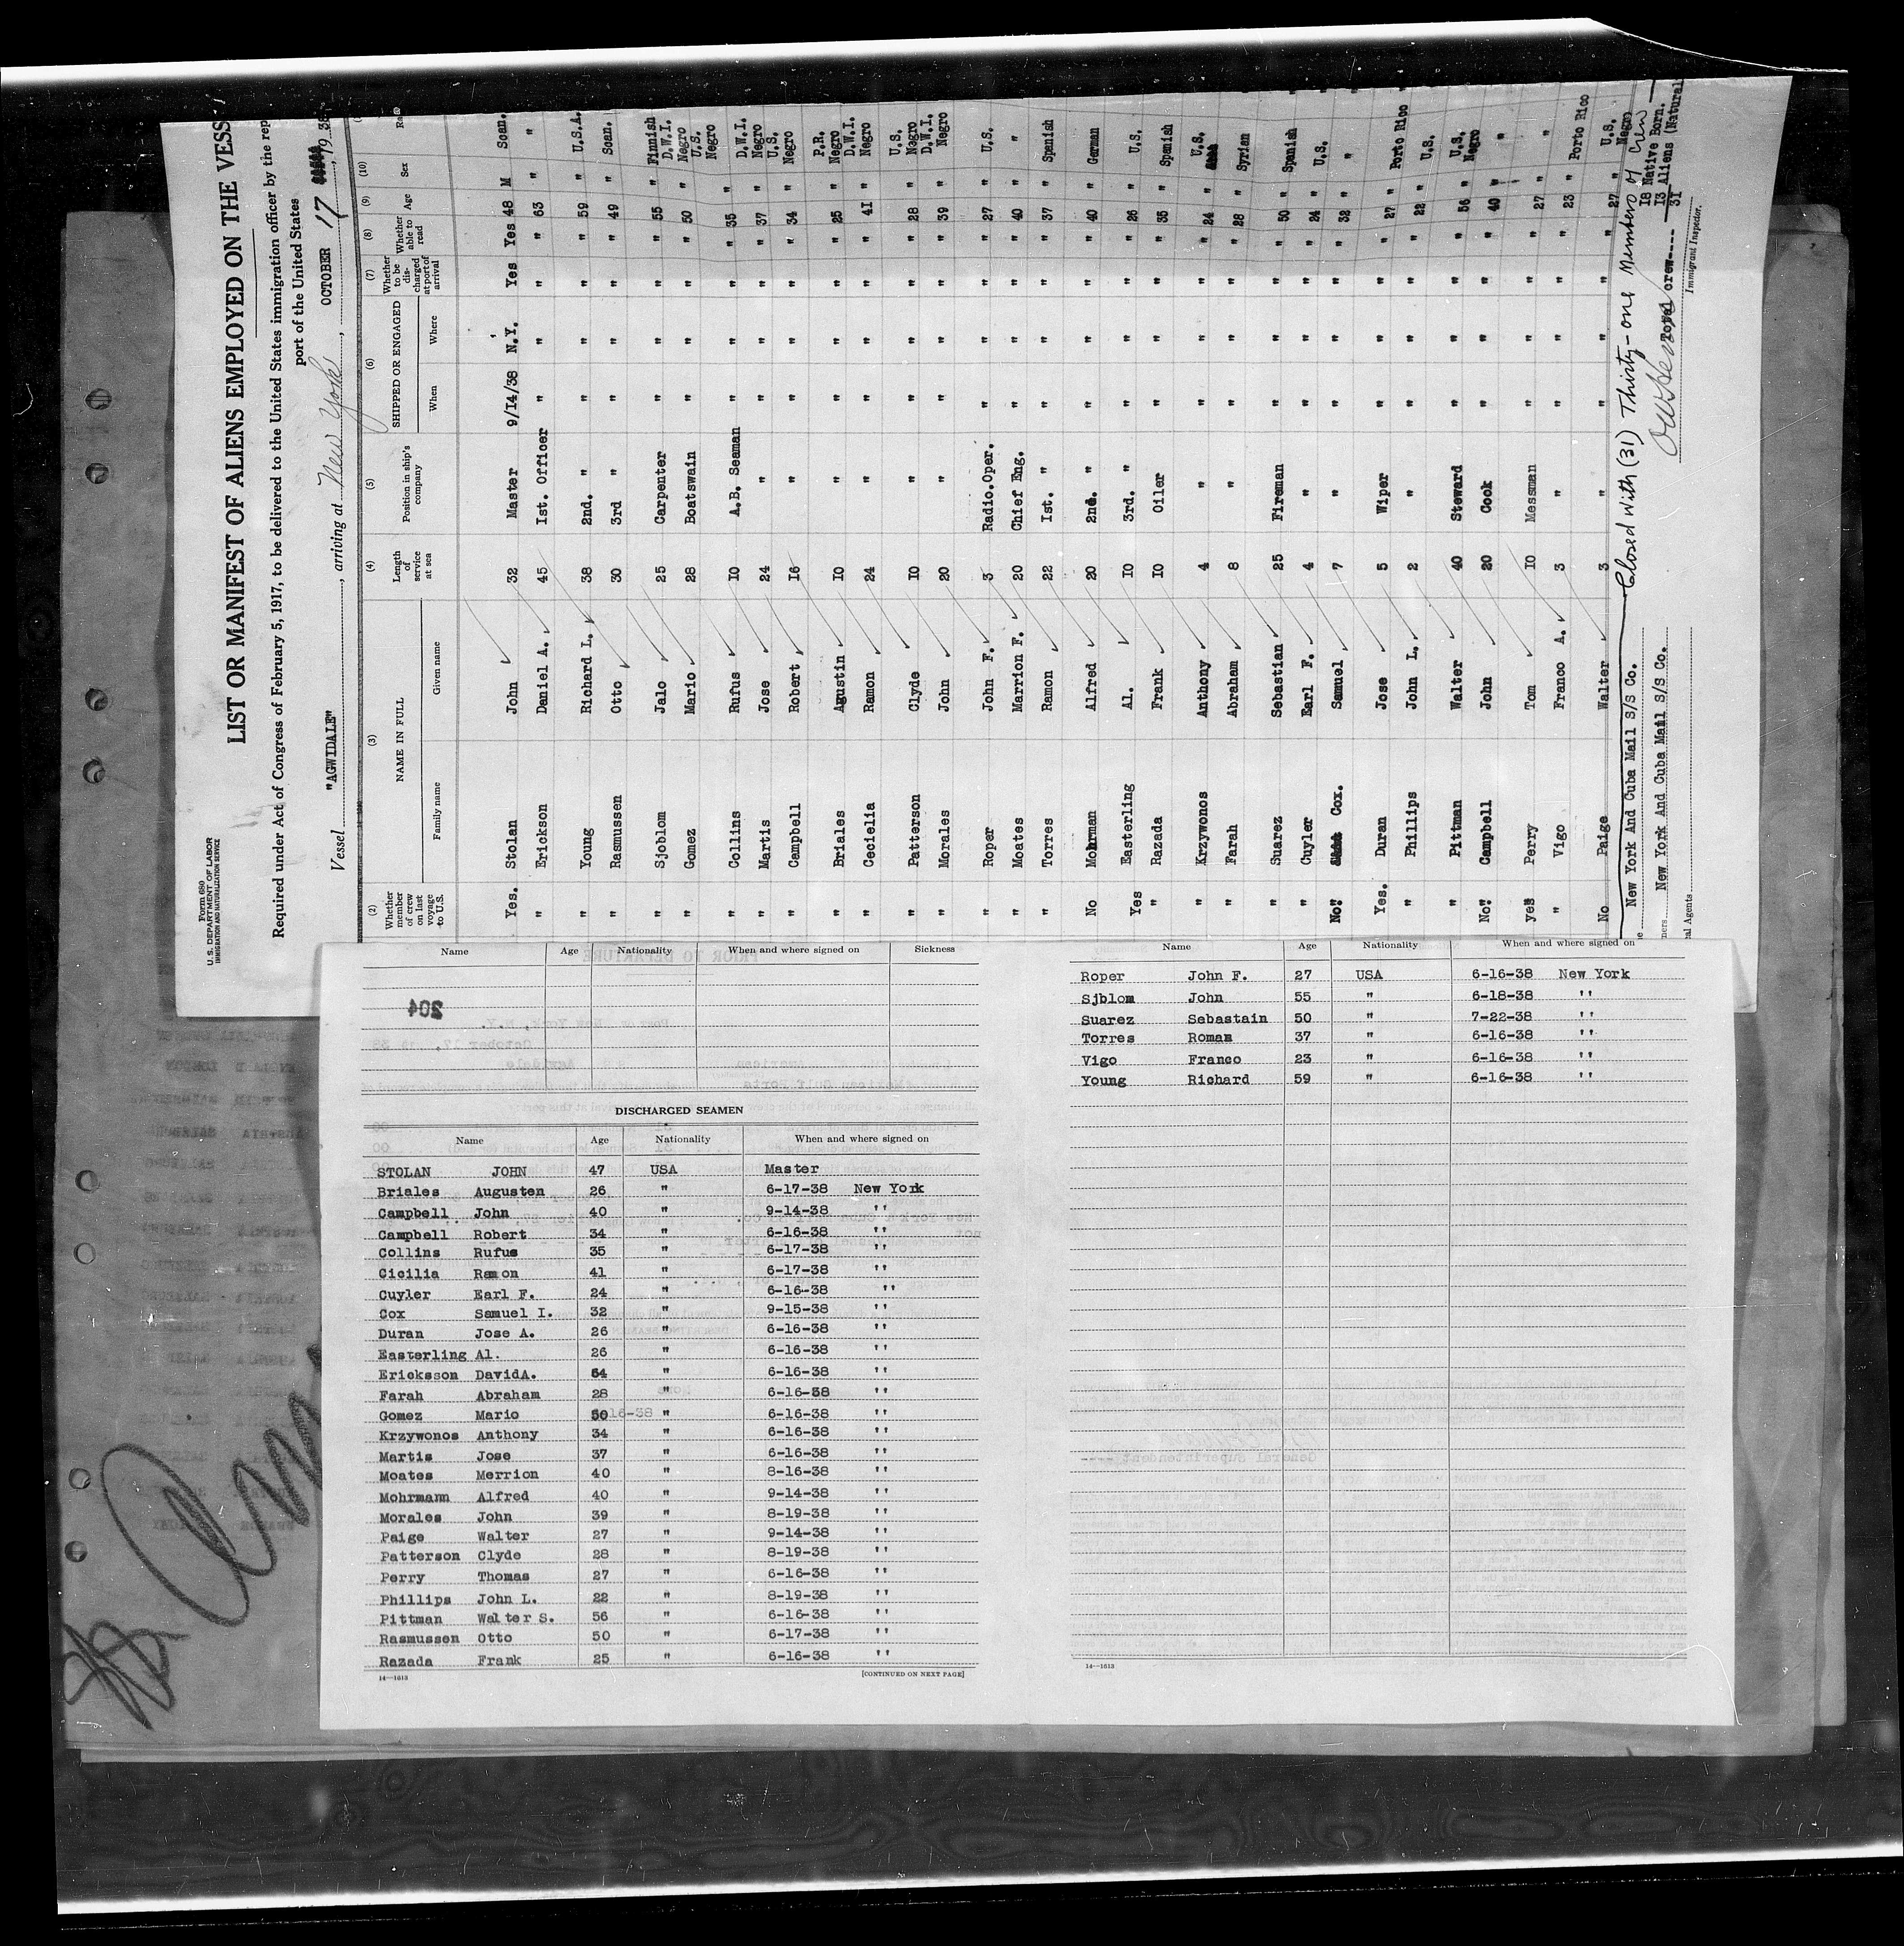 Form 680
U. S. DEPARTMENT OF LABOR
IMMIGRATION AND NATURALIZATION SERVICE
LIST OR MANIFEST OF ALIENS EMPLOYED ON THE VESS
Required under Act of Congress of February 5, 1917, to be delivered to the United States immigration officer by the rep
port of the United States
Vessel "AGWIDALE", arriving at New York, OCTOBER 17, 1938
(2) (3) (4) (5) (6) (7) (8) (9) (10)
Whether member of crew on last voyage to U.S. NAME IN FULL Family name Given name Length of service at sea Position in ship's company SHIPPED OR ENGAGED When Where Whether to be discharged at port of arrival Whether able to read Age Sex Ra
Yes. Stolan John 32 Master 9/14/38 N.Y. Yes Yes 48 M Scan.
" Erickson Daniel A. 45 1st. Officer " " " " 63 " "
" Young Richard L. 38 2nd. " " " " " 59 " U.S.A.
" Rasmussen Otto 30 3rd " " " " " 49 " Scan.
" Sjoblom Jalo 25 Carpenter " " " " 55 " Finnish
" Gomez Mario 28 Boatswain " " " " 50 " D.W.I. Negro
" Collins Rufus 10 A.B. Seaman " " " " 35 " U.S. Negro
" Martis Jose 24 " " " " " 37 " D.W.I. Negro
" Campbell Robert 16 " " " " " 34 " U.S. Negro
" Briales Agustin 10 " " " " " 25 " P.R. Negro
" Cecielia Ramon 24 " " " " " 41 " D.W.I. Negro
" Patterson Clyde 10 " " " " " 28 " U.S. Negro
" Morales John 20 " " " " " 39 " D.W.I. Negro
" Roper John F. 3 Radio.Oper. " " " " 27 " U.S.
" Moates Marrion F. 20 Chief Eng. " " " " 40 " "
" Torres Ramon 22 1st. " " " " " 37 " Spanish
No Mohrman Alfred 20 2nd. " " " " " 40 " German
Yes Easterling Al. 10 3rd. " " " " " 26 " U.S.
" Razada Frank 10 Oiler " " " " 35 " Spanish
" Krzywonos Anthony 4 " " " " " 24 " U.S.
" Farah Abraham 8 " " " " " 28 " Syrian
" Suarez Sebastian 25 Fireman " " " " 50 " Spanish
" Cuyler Earl F. 4 " " " " " 24 " U.S.
No. Cox. Samuel 7 " " " " " 32 " "
Yes. Duran Jose 5 Wiper " " " " 27 " Porto Rico
" Phillips John L. 2 " " " " " 22 " U.S.
" Pittman Walter 40 Steward " " " " 56 " U.S. Negro
No. Campbell John 20 Cook " " " " 40 " "
yes Perry Tom 10 Messman " " " " 27 " "
" Vigo Franco A. 3 " " " " " 23 " Porto Rico
No Paige Walter 3 " " " " " 27 " U.S. Negro
Closed with (31) Thirty-one Members of Crew
New York And Cuba Mail S/S Co.
New York And Cuba Mail S/S Co.
al Agents
18 Native Born.
13 Aliens (Natural
31
crew----
Immigrant Inspector.
Name Age Nationality When and where signed on Sickness
204
DISCHARGED SEAMEN
Name Age Nationality When and where signed on
STOLAN JOHN 47 USA Master
Briales Augusten 26 " 6-17-38 New York
Campbell John 40 " 9-14-38 ''
Campbell Robert 34 " 6-16-38 ''
Collins Rufus 35 " 6-17-38 ''
Cicilia Ramon 41 " 6-17-38 ''
Cuyler Earl F. 24 " 6-16-38 ''
Cox Samuel I. 32 " 9-15-38 ''
Duran Jose A. 26 " 6-16-38 ''
Easterling Al. 26 " 6-16-38 ''
Ericksson DavidA. 64 " 6-16-38 ''
Farah Abraham 28 " 6-16-38 ''
Gomez Mario 50 " 6-16-38 ''
Krzywonos Anthony 34 " 6-16-38 ''
Martis Jose 37 " 6-16-38 ''
Moates Merrion 40 " 8-16-38 ''
Mohrmann Alfred 40 " 9-14-38 ''
Morales John 39 " 8-19-38 ''
Paige Walter 27 " 9-14-38 ''
Patterson Clyde 28 " 8-19-38 ''
Perry Thomas 27 " 6-16-38 ''
Phillips John L. 22 " 8-19-38 ''
Pittman Walter S. 56 " 6-16-38 ''
Rasmussen Otto 50 " 6-17-38 ''
Razada Frank 25 " 6-16-38 ''
14—1613 [CONTINUED ON NEXT PAGE]
Name Age Nationality When and where signed on
Roper John F. 27 USA 6-16-38 New York
Sjblom John 55 " 6-18-38 ''
Suarez Sebastain 50 " 7-22-38 ''
Torres Roman 37 " 6-16-38 ''
Vigo Franco 23 " 6-16-38 ''
Young Richard 59 " 6-16-38 ''
14—1613